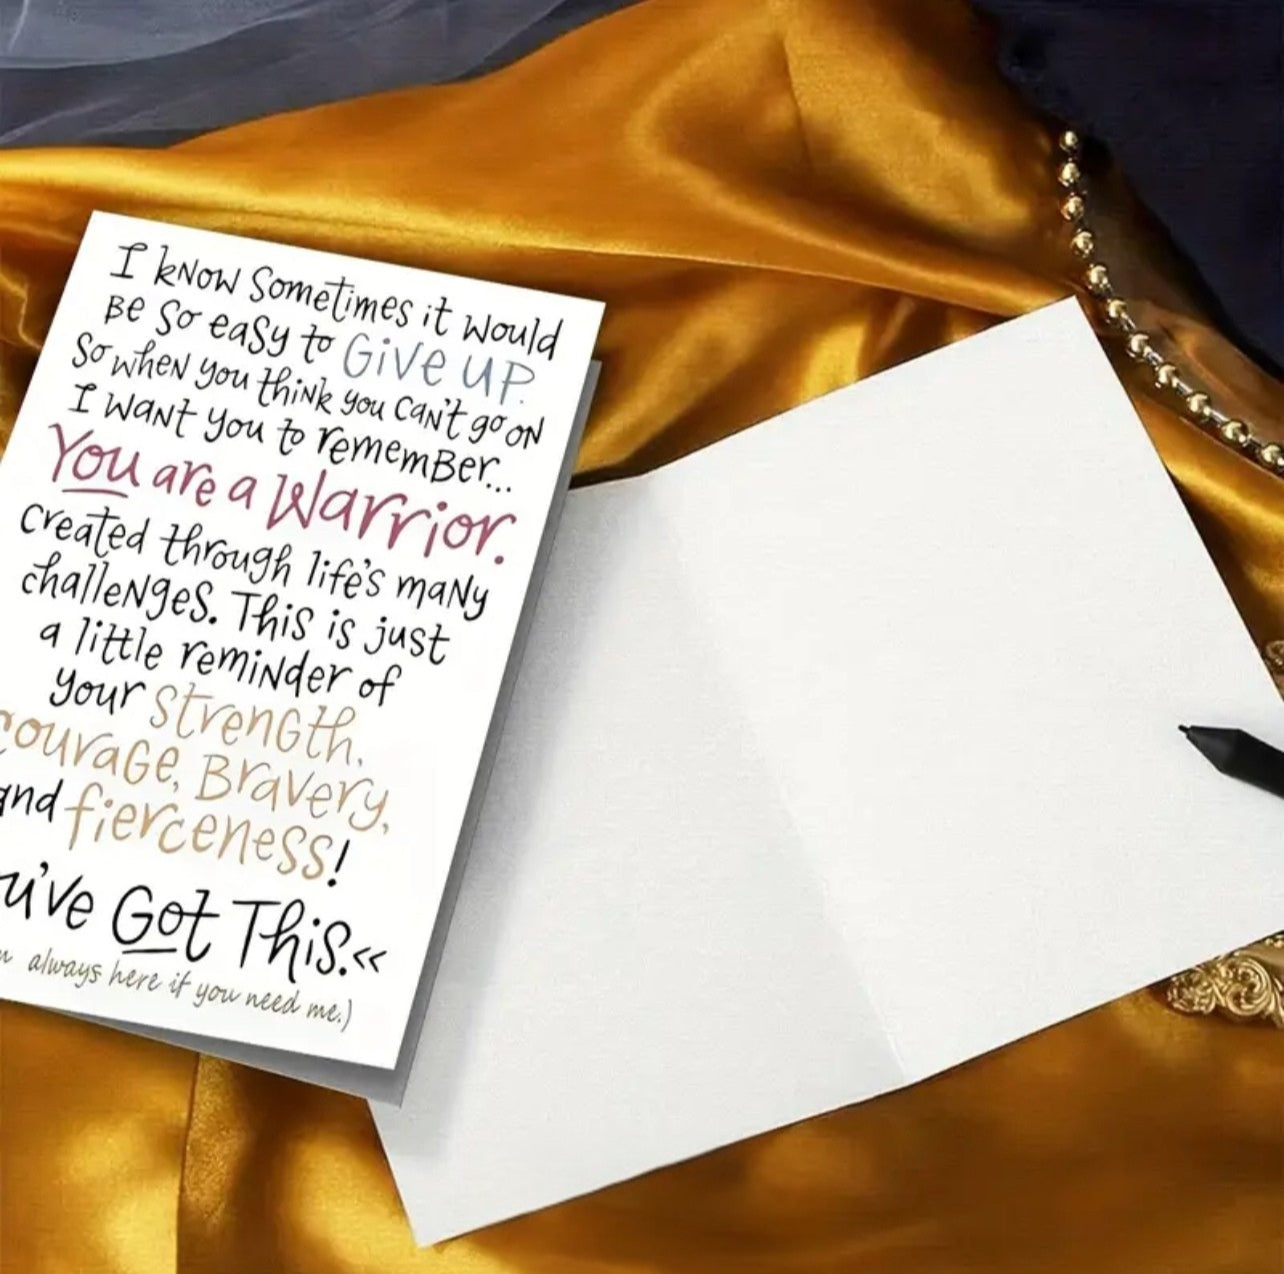 I know sometimes it would
Be so easy to Give up.
So when you think you can't go on
I want you to remember...
You are a Warrior.
created through life's many
challenges. This is just
a little reminder of
your strength,
courage, Bravery,
and fierceness!
u've Got This.<<
always here if you need me.)